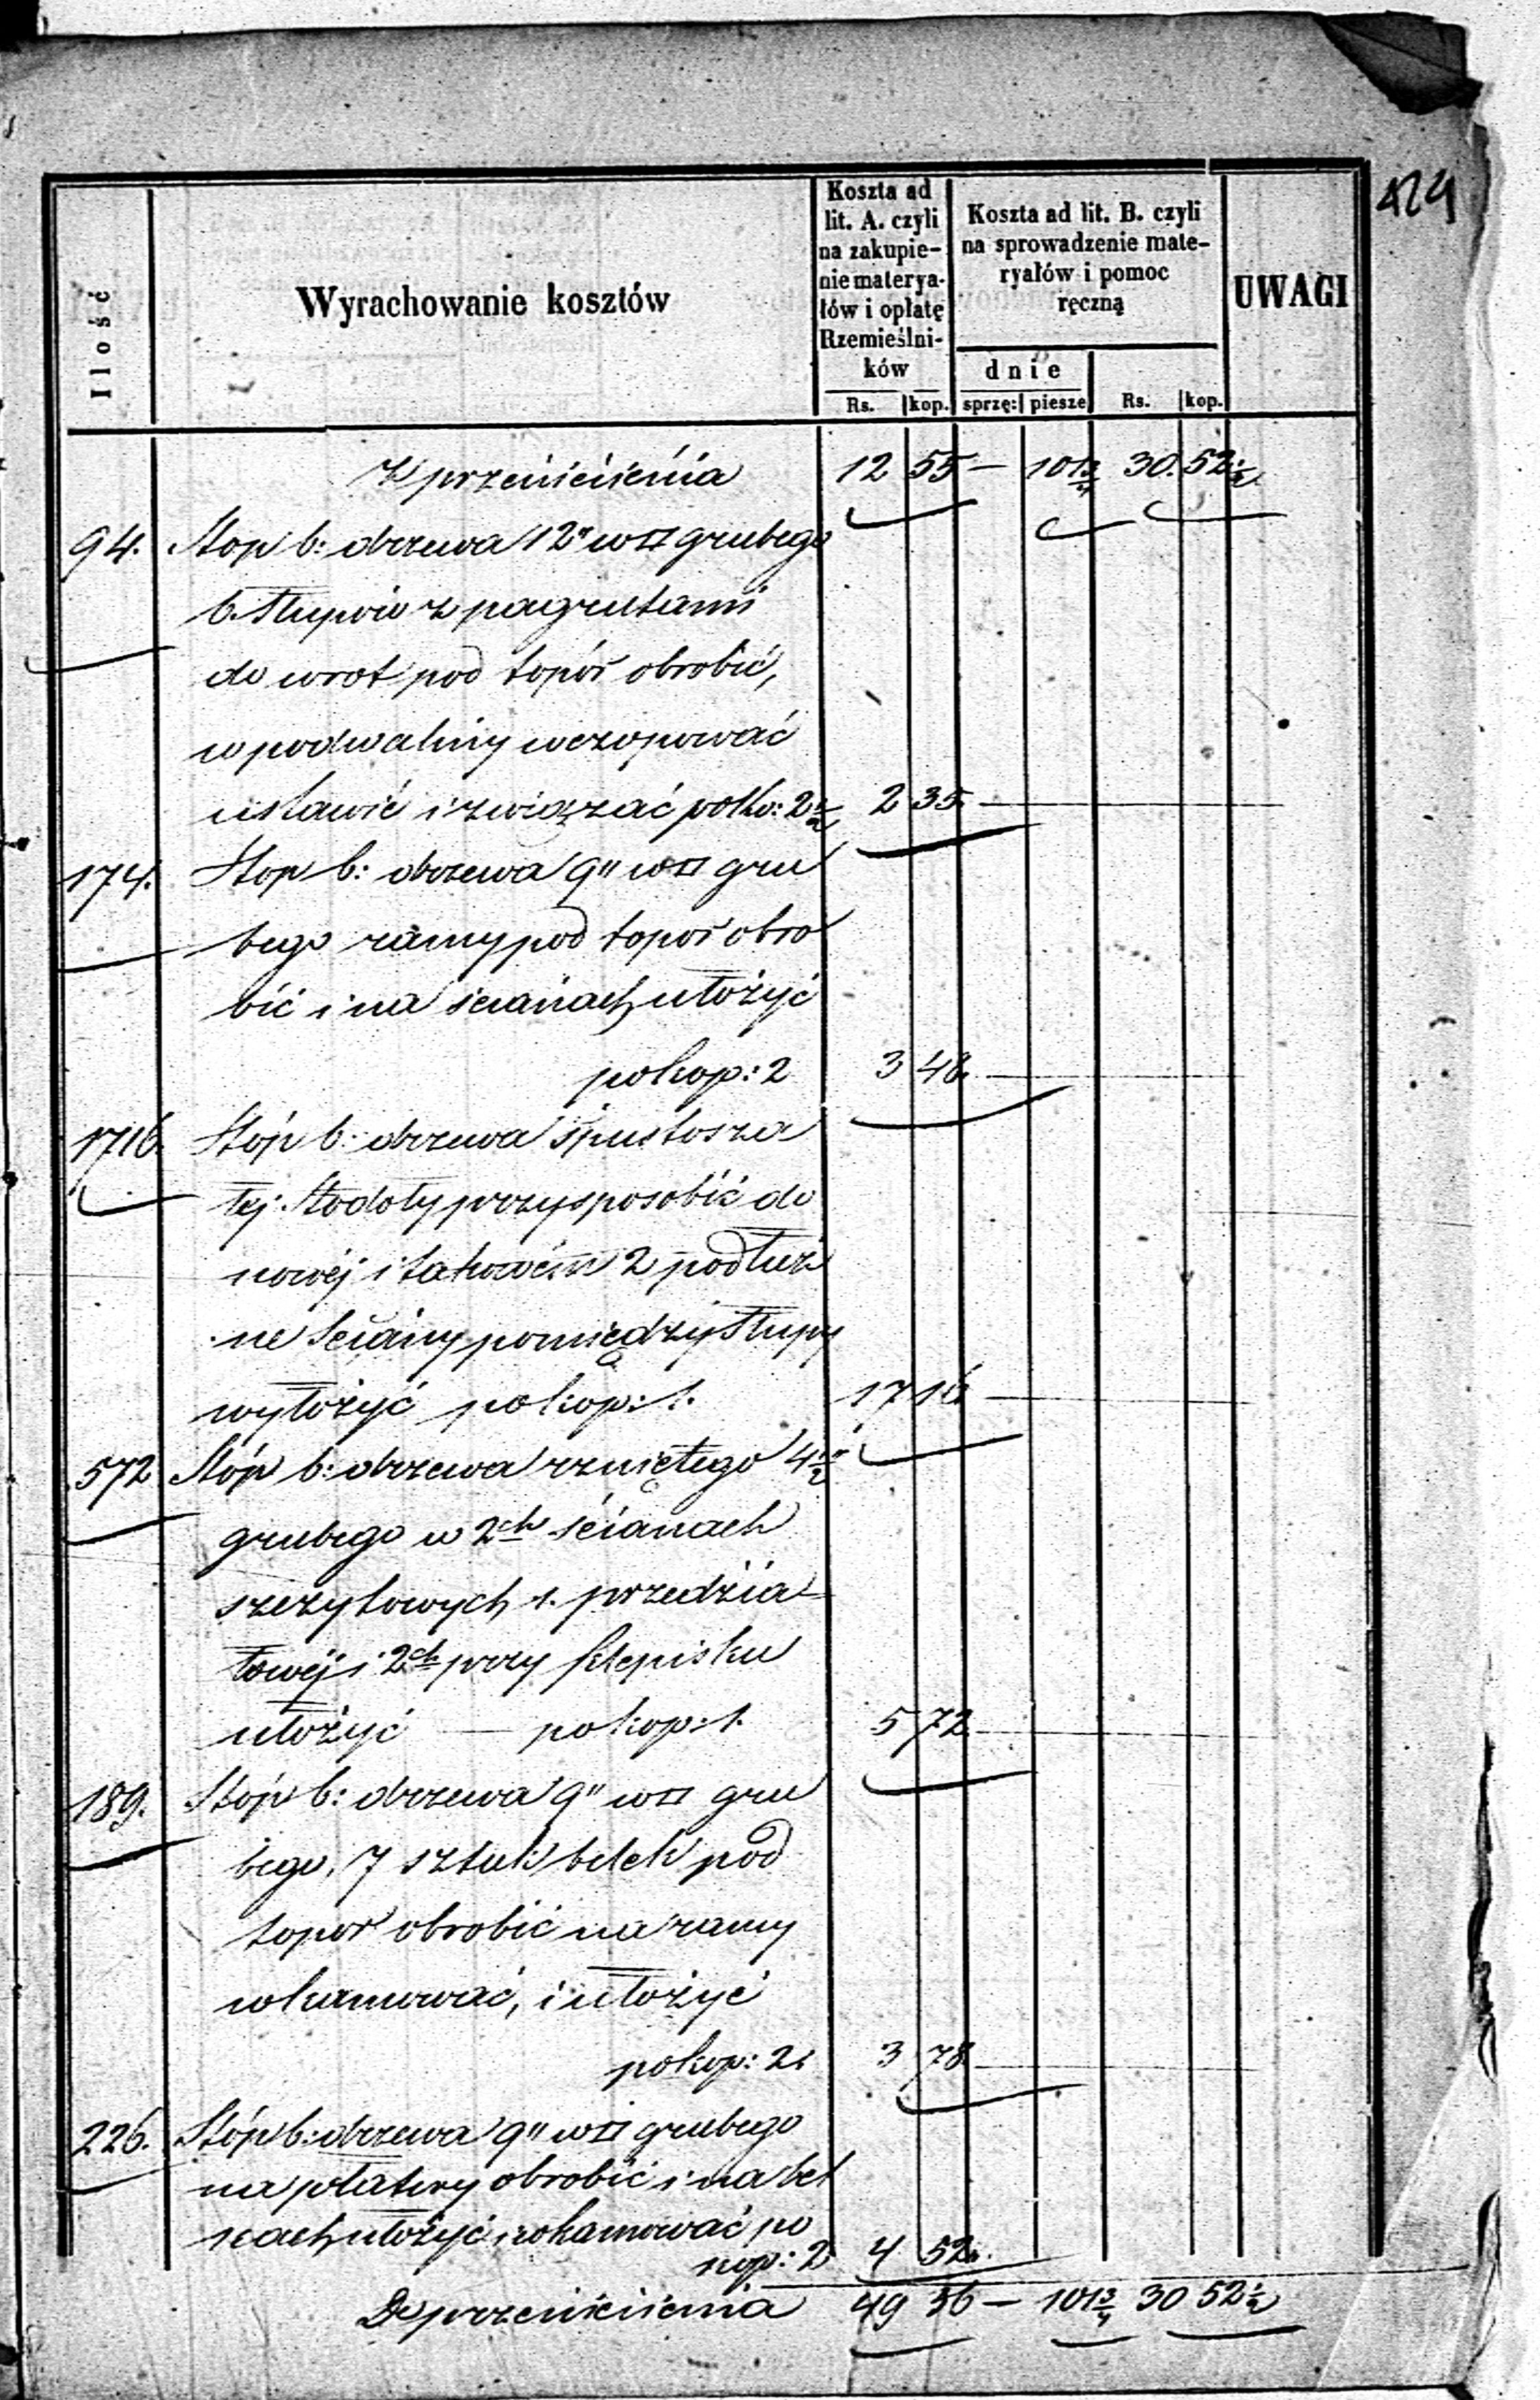 424
Ilość
Wyrachowanie kosztów
Koszta ad
lit. A. czyli
na zakupie-
nie materya-
łów i opłatę
Rzemieślni-
ków
Rs. kop.
Koszta ad lit. B. czyli
na sprowadzenie mate-
ryałów i pomoc
ręczną
dnie
sprzę: piesze Rs. kop.
UWAGI
Z przeniesienia 12 55 — 101 3/4 30. 52 1/2
94. Stop b: drzewa 12" w □ grubego
6. słupów z pagrutami
do wrot pod topór obrobić,
w podwaliny wczopować
ustawić i związać po ko: 2 1/2 2 35. —
174. Stop b: drzewa 9" w □ gru
bego ramy pod topor obro
bić i na ścianach ułożyć
po kop: 2 3 48. —
1716. Stóp b: drzewa spustosza
łej stodoły przysposobić do
nowéj i takowém 2 podłuż
ne ściany pomiędzy słupy
wyłożyć po kop: 1. 17 16 —
572 Stóp b: drzewa rzniętego 4 1/2"
grubego w 2ch ścianach
szczytowych 1. przedzia-
łowéj i 2ch przy klepisku
ułożyć — po kop: 1. 5 72 —
189. Stóp b: drzewa 9" w □ gru
bego, 7 sztuk belek pod
topor obrobić na ramy
wkamować, i ułożyć
po kop: 2. 3 78 —
226. Stóp b: drzewa 9" w □ grubego
na płatwy obrobić i na bel
kach ułożyć i wkamować po
kop: 2 4 52.
Do przeniesienia 49 56 — 101 3/4 30 52 1/2